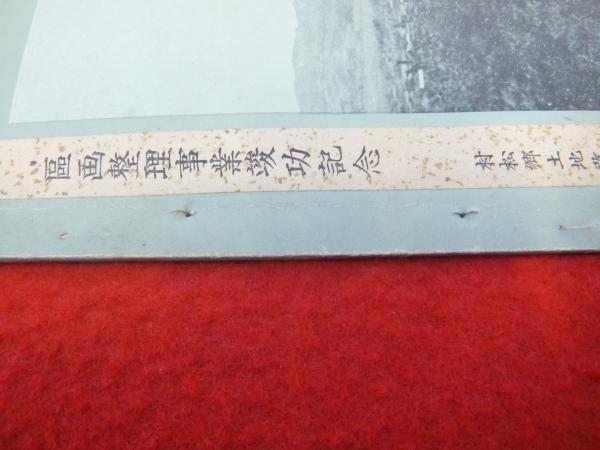 區画整理事業竣功記念
村松郷土地